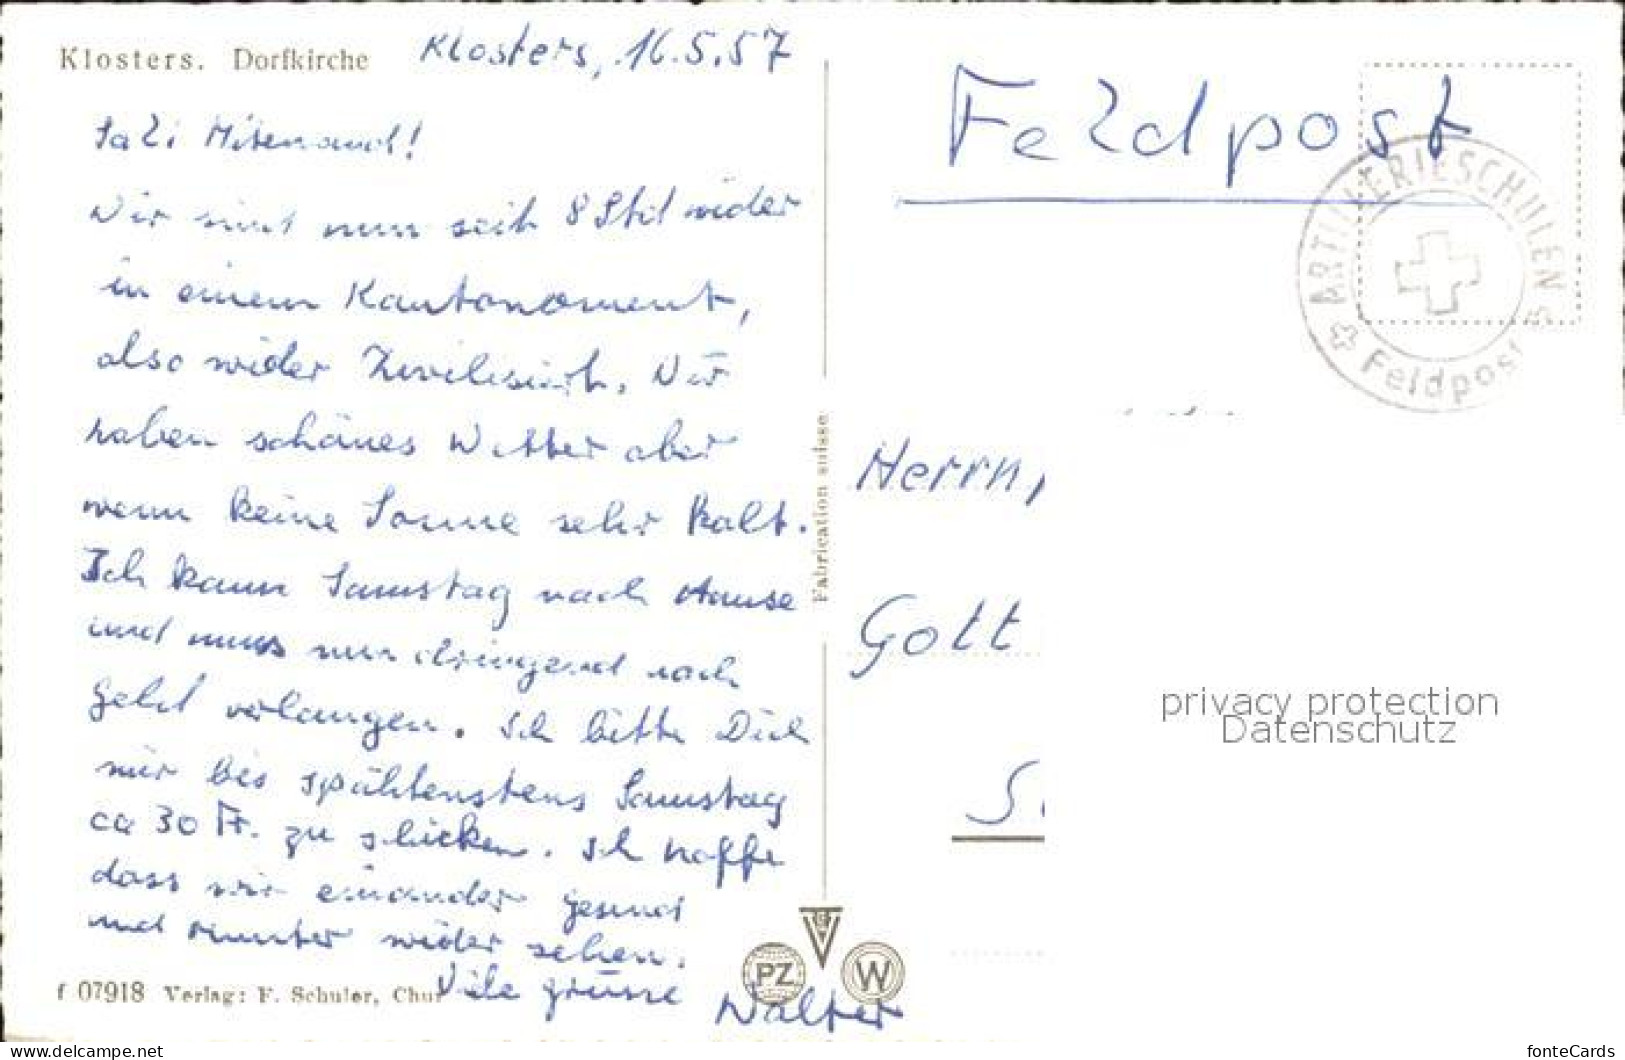 Klosters. Dorfkirche
Klosters, 16.5.57
Sali Mitenand!
Wir sind nun seit 8 Std wider
in einem Kantonoment,
also wider Zivilisiert. Wir
haben schönes Wetter aber
wenn keine Sonne sehr kalt.
Ich kann Samstag nach Hause
und muss nun dringend nach
Geld verlangen. Ich bitte Dich
mir bis spähtenstens Samstag
ca 30 Fr. zu schicken. Ich hoffe
dass wir einander gesund
und munter wider sehen.
Vile grüsse
Walter
f 07918 Verlag: F. Schuler, Chur
Fabrication suisse
PZ
W
Feldpost
ARTILLERIESCHULEN
Feldpost
Herrn,
Gott
privacy protection
Datenschutz
https://www.delcampe.net
fonteCards